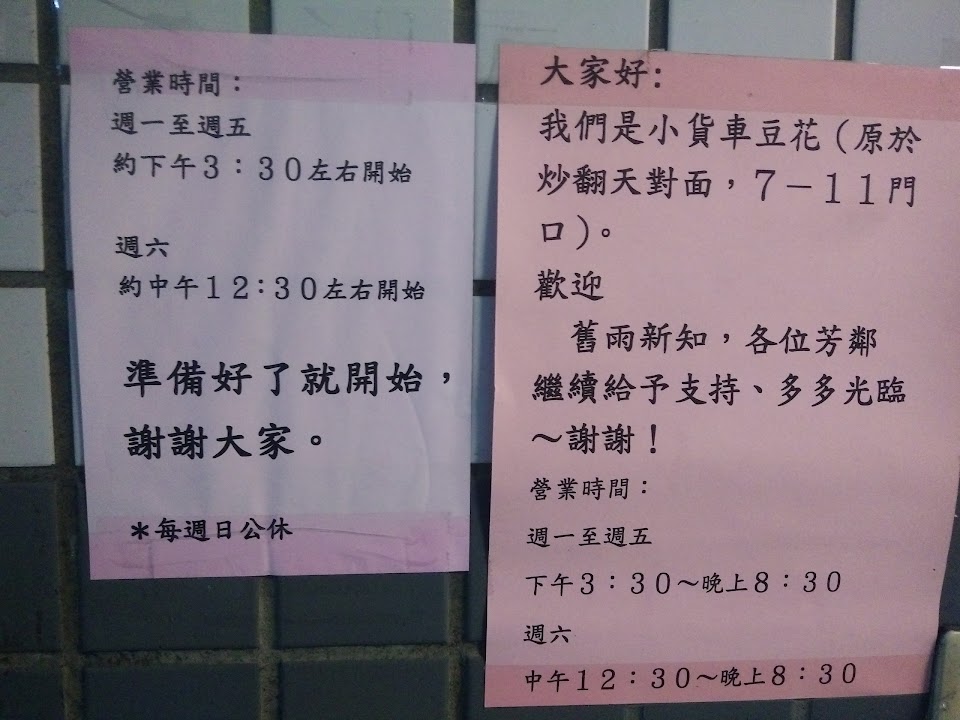 營業時間：
週一至週五
約下午３：３０左右開始
週六
約中午１２：３０左右開始
準備好了就開始，
謝謝大家。
＊每週日公休
大家好：
我們是小貨車豆花（原於
炒翻天對面，７－１１門
口）。
歡迎
舊雨新知，各位芳鄰
繼續給予支持、多多光臨
～謝謝！
營業時間：
週一至週五
下午３：３０～晚上８：３０
週六
中午１２：３０～晚上８：３０